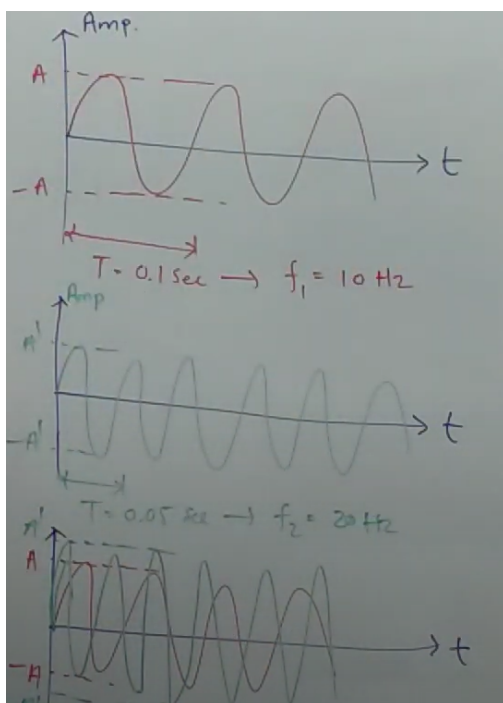 Amp.
A
t
-A
T = 0.1 sec → f₁ = 10 Hz
Amp
A'
t
-A'
T = 0.05 sec → f₂ = 20 Hz
A'
A
t
-A